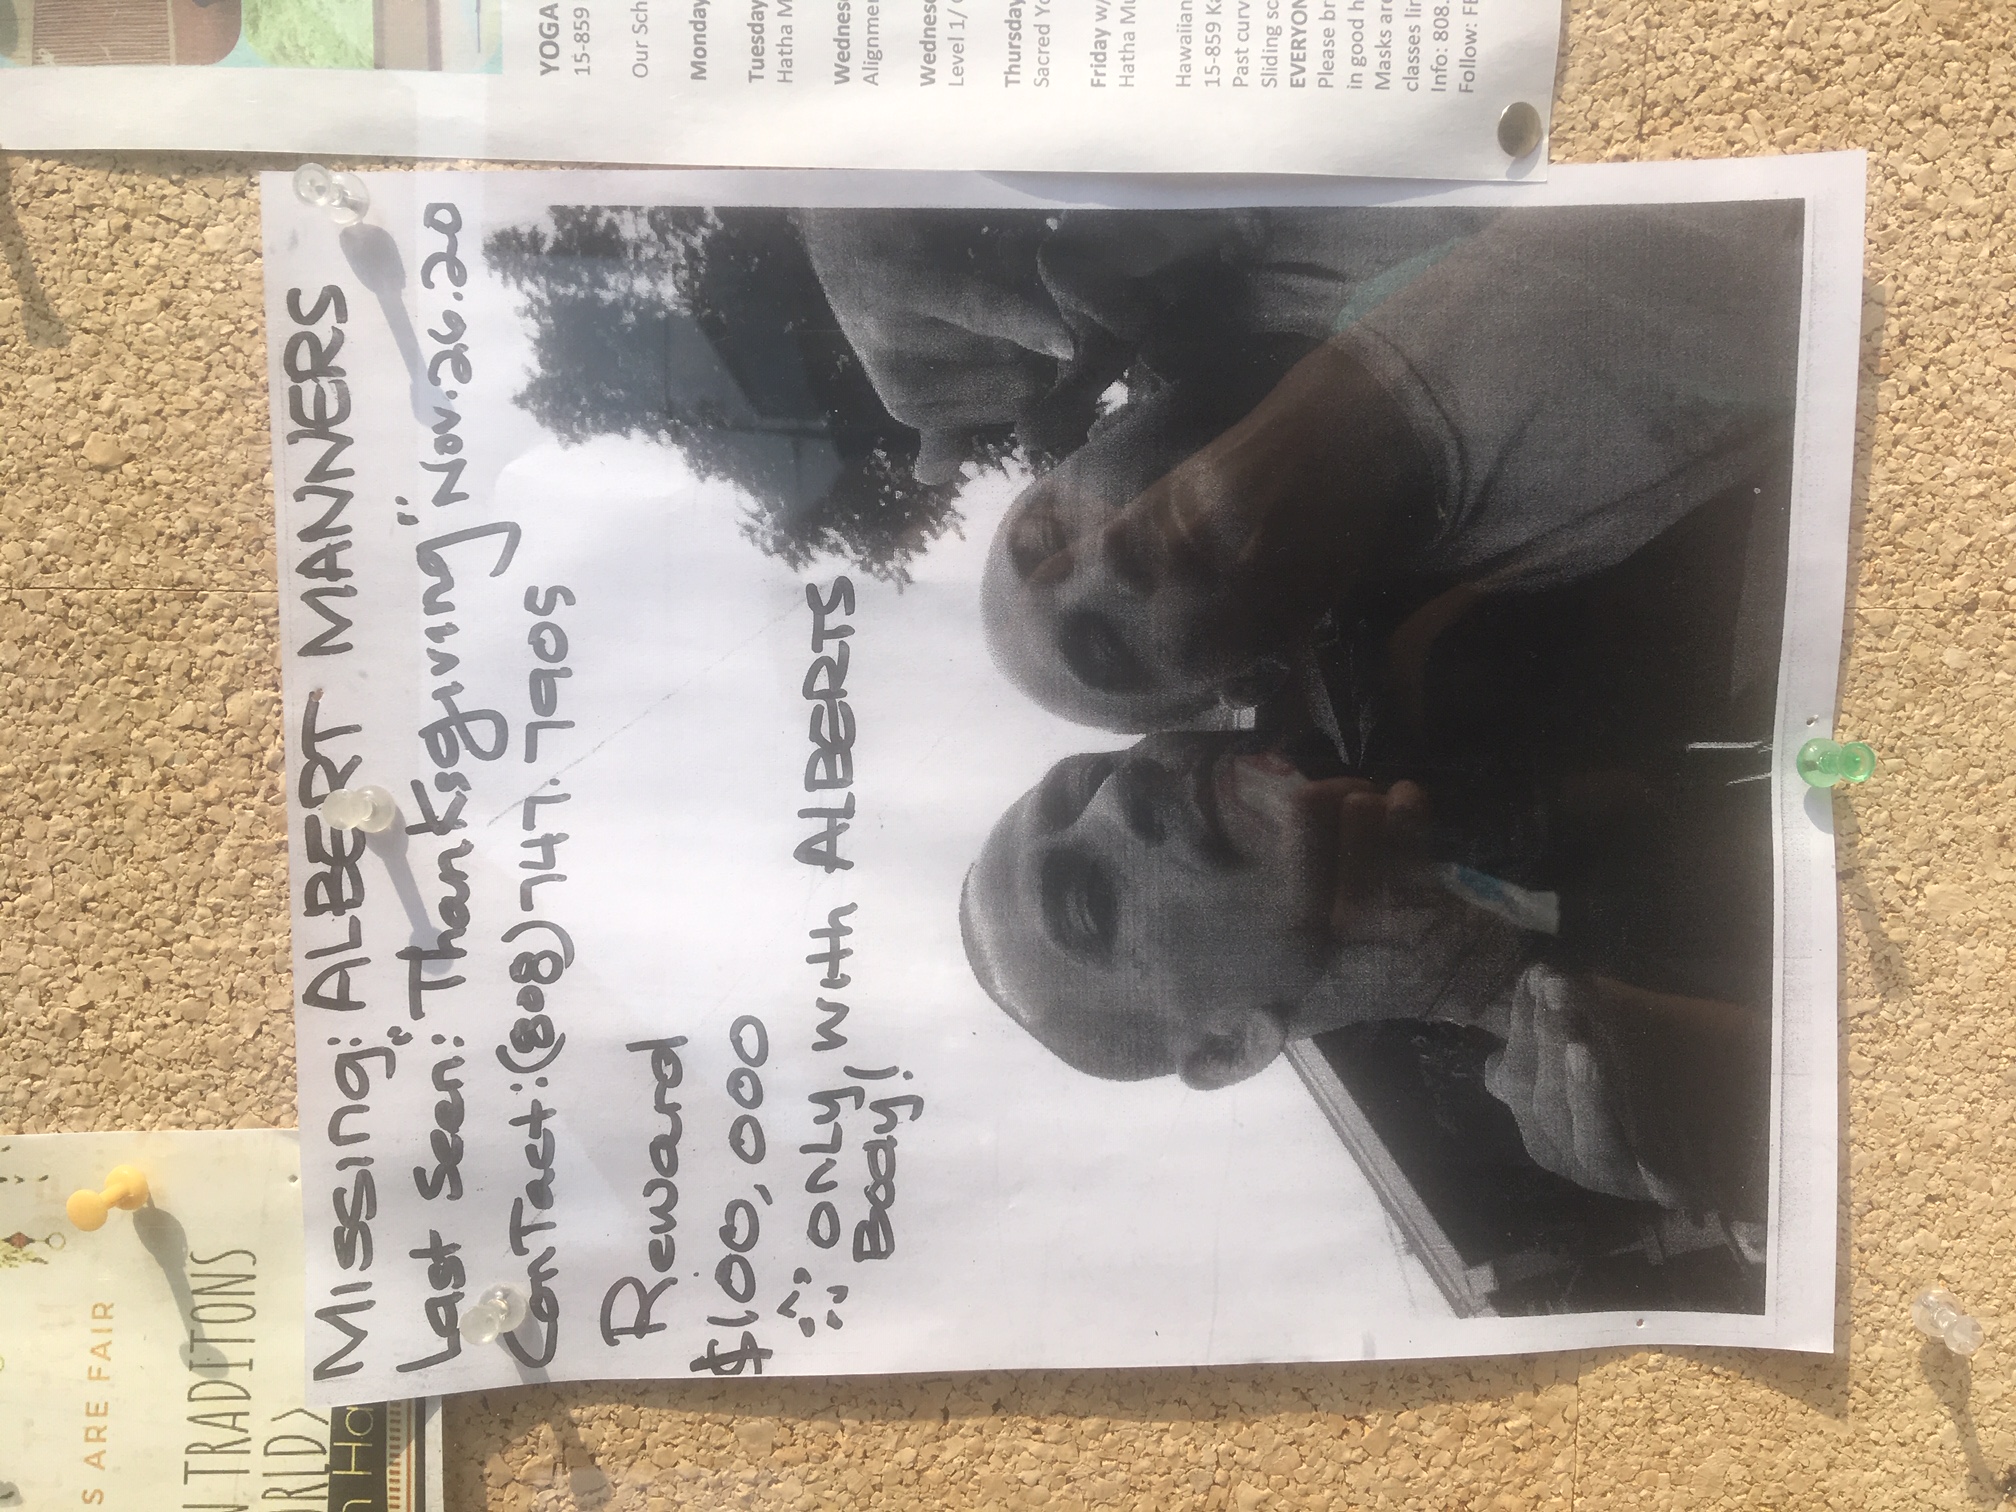 S ARE FAIR
N TRADITONS
ORLD>
n Ha
Missing: ALBERT MANNERS
Last Seen: "Thanksgiving" Nov.26.20
Contact: (808) 747.7905
Reward
$100,000
only, with ALBERTS
Body!
YOGA
15-859
Our Sch
Monday
Tuesday
Hatha M
Wednes
Alignme
Wednes
Level 1/
Thursday
Sacred Yo
Friday w/
Hatha Mu
Hawaiian
15-859 Ka
Past curv
Sliding sc
EVERYON
Please br
in good h
Masks are
classes lir
Info: 808.
Follow: FB